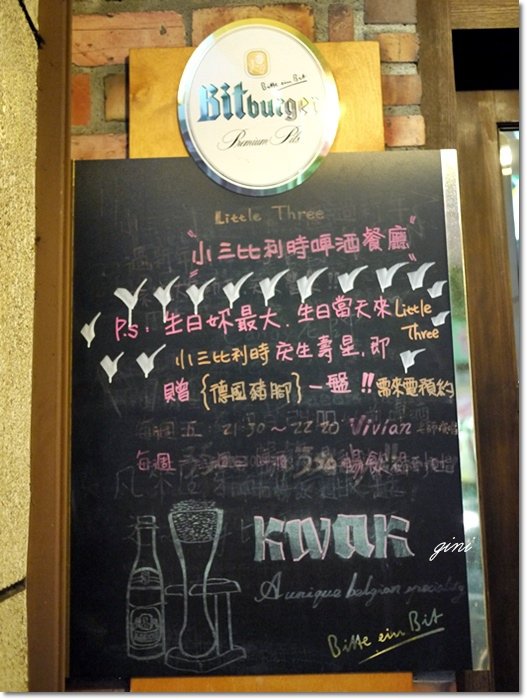 Bitte ein Bit
Bitburger
Premium Pils
Little Three
"小三比利時啤酒餐廳"
P.S: 生日你最大.生日當天來Little Three
小三比利時庆生壽星.即
贈{德國豬腳}一盤!!需來電預約
每週五 21:30～22:20 Vivian
每週 暢飲
KWAK
gini
A unique belgian speciality
Bitte ein Bit